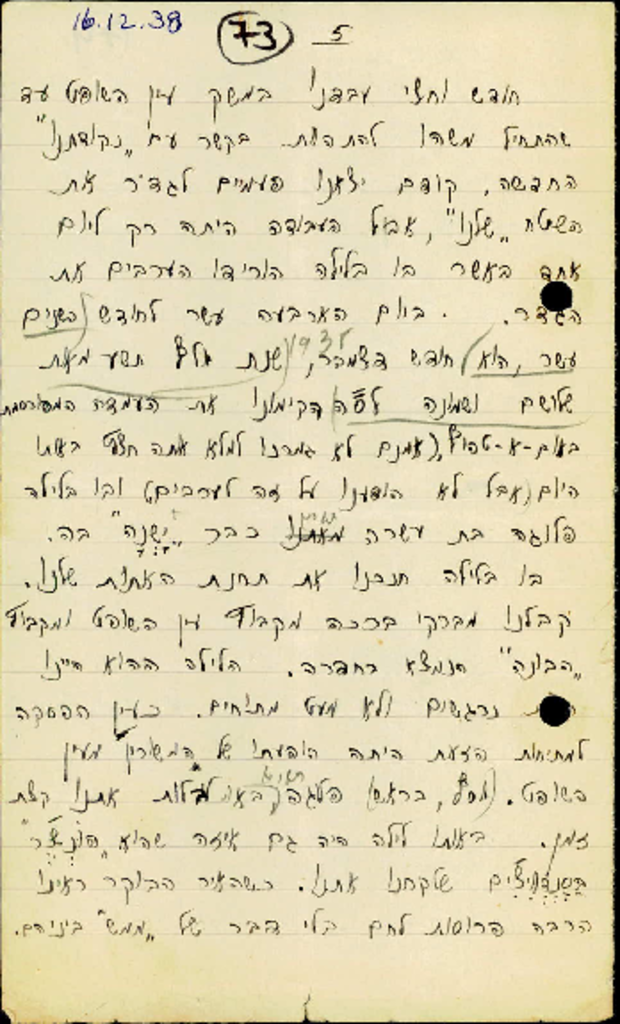 16.12.38
73 5
חודש וחצי עבדנו במשק עין השופט עד
שהתחיל משהו להתהוות בקשר עם "נקודתנו"
החדשה, קודם יצאנו פעמים לגדר את
השטח "שלנו", אבל העבודה היתה רק ליום
אחד באשר בו בלילה הורידו הערבים את
הגדר. ביום הארבעה עשר לחודש (בשנים
עשר, הוא) חודש דצמבר, 1938 (שנת אלף תשע מאות
שלושים ושמונה הקימונו את העמדה המפורסמת
(אמנם לא גמרנו למלא אותה חצץ באותו
היום (אבל לא הודענו על זה לערבים) ובו בלילה
פלוגה בת עשרה כבר "ישנה" בה.
בו בלילה חנכנו את תחנת האתות שלנו.
קבלנו מברקי ברכה מקבוץ עין השופט ומקבוץ
"הבונה" הנמצא בחדרה. הלילה ההוא היינו
נרגשים ולא מעט מתוחים. כעין הפסקה
למתיחות הזאת היתה הופעתו של המשוריין מעין
השופט. בראש) פלגה לבלות אתנו קצת
זמן. באותו לילה היה גם איזה שהוא
שלקחנו אתנו. כשהאיר הבוקר ראינו
הרבה פרוסות לחם בלי דבר של "ממש" ביניהם.